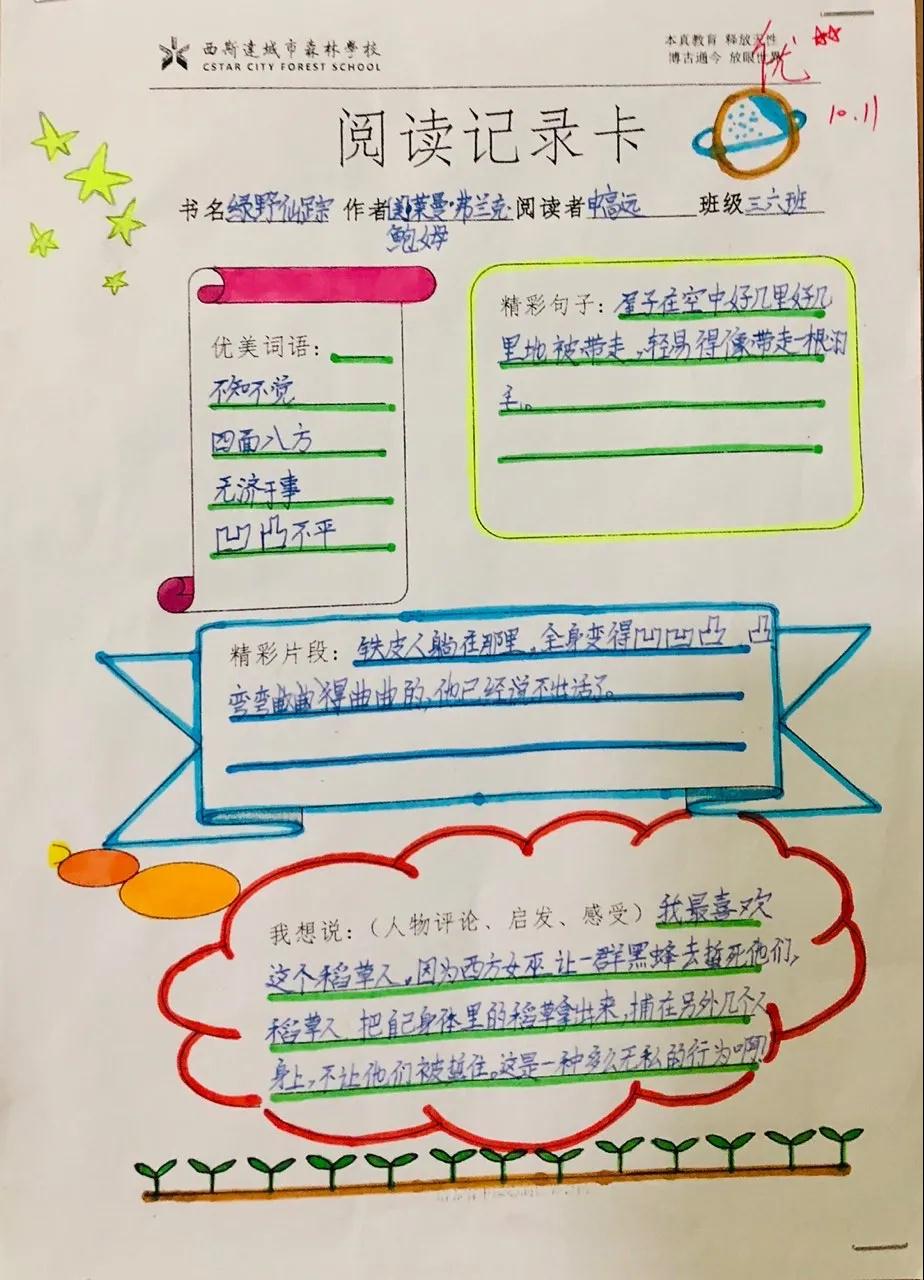 西斯達城市森林學校
CSTAR CITY FOREST SCHOOL
本真教育 释放天性
博古通今 放眼世界
优
10.11
阅读记录卡
书名绿野仙踪 作者莱曼·弗兰克 阅读者申高远 班级三六班
鲍姆
优美词语:
不知不觉
四面八方
无济于事
凹凸不平
精彩句子: 屋子在空中好几里好几
里地被带走,轻易得像带走一根羽
毛。
精彩片段: 铁皮人躺在那里,全身变得凹凹凸凸
弯弯曲曲得曲曲的,他已经说不出话了。
我想说:(人物评论、启发、感受) 我最喜欢
这个稻草人,因为西方女巫让一群黑蜂去蜇死他们,
稻草人把自己身体里的稻草拿出来,捕在另外几个人
身上,不让他们被蜇住。这是一种多么无私的行为啊!